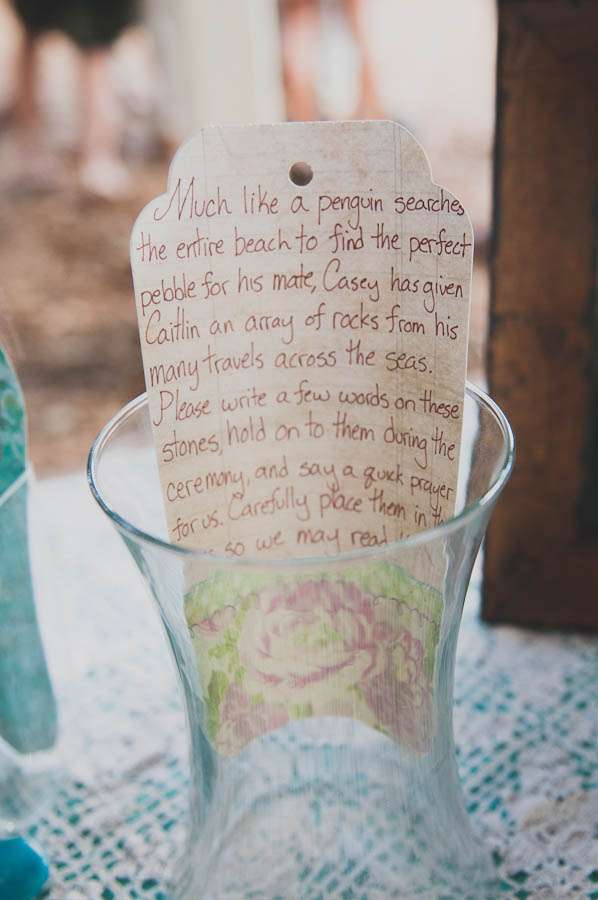 Much like a penguin searches
the entire beach to find the perfect
pebble for his mate, Casey has given
Caitlin an array of rocks from his
many travels across the seas.
Please write a few words on these
stones, hold on to them during the
ceremony, and say a quick prayer
for us. Carefully place them in
so we may read